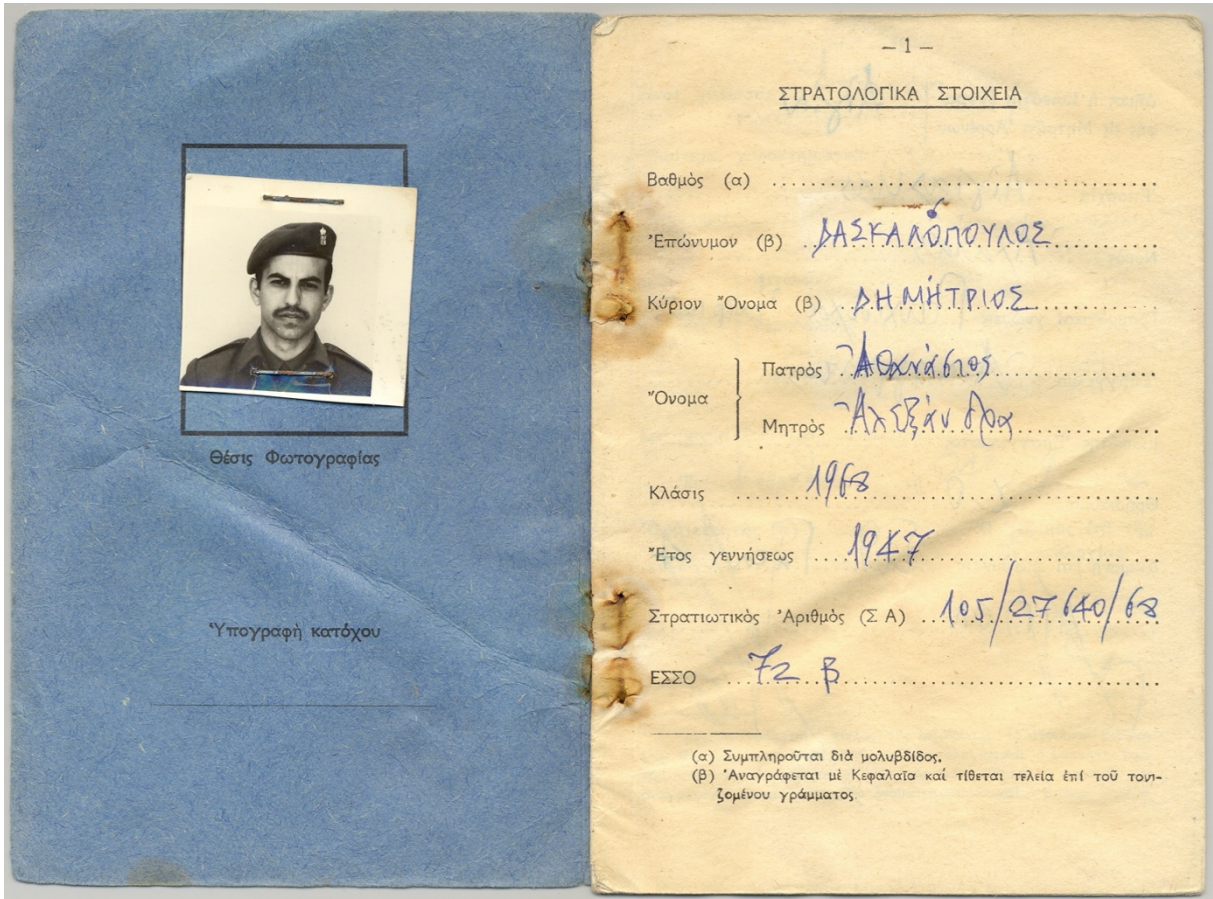 Θέσις Φωτογραφίας
Ὑπογραφὴ κατόχου
– 1 –
ΣΤΡΑΤΟΛΟΓΙΚΑ ΣΤΟΙΧΕΙΑ
Βαθμὸς (α)
Ἐπώνυμον (β) ΔΑΣΚΑΛΌΠΟΥΛΟΣ
Κύριον Ὄνομα (β) ΔΗΜΉΤΡΙΟΣ
Ὄνομα
Πατρὸς Ἀθανάσιος
Μητρὸς Ἀλεξάνδρα
Κλάσις 1968
Ἔτος γεννήσεως 1947
Στρατιωτικὸς Ἀριθμὸς (Σ Α) 105/27640/68
ΕΣΣΟ 72 Β
(α) Συμπληροῦται διὰ μολυβδίδος.
(β) Ἀναγράφεται μὲ Κεφαλαῖα καί τίθεται τελεία ἐπί τοῦ τονι-
ζομένου γράμματος.